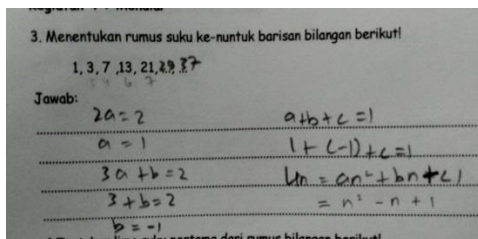 3. Menentukan rumus suku ke-nuntuk barisan bilangan berikut!
1, 3, 7 ,13, 21,29, 37
Jawab:
2a = 2
a = 1
3a + b = 2
3 + b = 2
b = -1
a+b+c = 1
1 + (-1) + c = 1
Un = an² + bn + c
= n² - n + 1